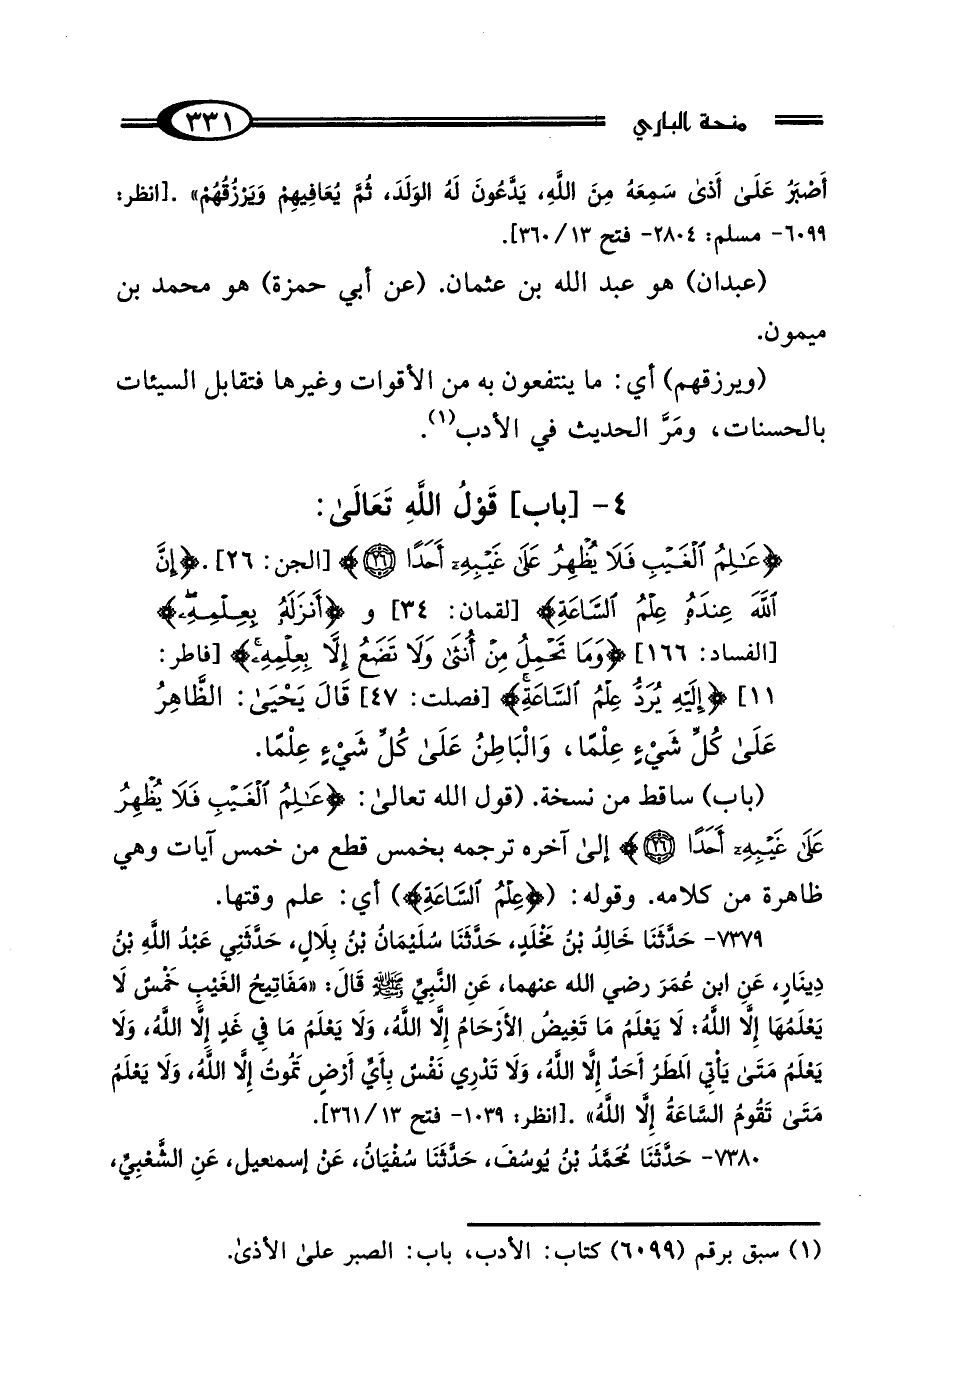 منحة الباري ٣٣١
أَصْبَرُ عَلَىٰ أَذىٰ سَمِعَهُ مِنَ اللَّهِ، يَدَّعُونَ لَهُ الوَلَدَ، ثُمَّ يُعَافِيهِمْ وَيَرْزُقُهُمْ» .[انظر:
٦٠٩٩- مسلم: ٢٨٠٤- فتح ١٣/ ٣٦٠].
(عبدان) هو عبد الله بن عثمان. (عن أبي حمزة) هو محمد بن
ميمون.
(ويرزقهم) أي: ما ينتفعون به من الأقوات وغيرها فتقابل السيئات
بالحسنات، ومَرَّ الحديث في الأدب(١).
٤- [باب] قَوْلُ اللَّهِ تَعَالَىٰ:
﴿عَـٰلِمُ ٱلْغَيْبِ فَلَا يُظْهِرُ عَلَىٰ غَيْبِهِۦٓ أَحَدًا ۝٢٦﴾ [الجن: ٢٦] .﴿إِنَّ
ٱللَّهَ عِندَهُۥ عِلْمُ ٱلسَّاعَةِ﴾ [لقمان: ٣٤] و ﴿أَنزَلَهُۥ بِعِلْمِهِۦ﴾
[الفساد: ١٦٦] ﴿وَمَا تَحْمِلُ مِنْ أُنثَىٰ وَلَا تَضَعُ إِلَّا بِعِلْمِهِۦ﴾ [فاطر:
١١] ﴿إِلَيْهِ يُرَدُّ عِلْمُ ٱلسَّاعَةِ﴾ [فصلت: ٤٧] قَالَ يَحْيَىٰ: الظَّاهِرُ
عَلَىٰ كُلِّ شَيْءٍ عِلْمًا، وَالْبَاطِنُ عَلَىٰ كُلِّ شَيْءٍ عِلْمًا.
(باب) ساقط من نسخة. (قول الله تعالىٰ: ﴿عَـٰلِمُ ٱلْغَيْبِ فَلَا يُظْهِرُ
عَلَىٰ غَيْبِهِۦٓ أَحَدًا ۝٢٦﴾ إلىٰ آخره ترجمه بخمس قطع من خمس آيات وهي
ظاهرة من كلامه. وقوله: (﴿عِلْمُ ٱلسَّاعَةِ﴾) أي: علم وقتها.
٧٣٧٩- حَدَّثَنَا خَالِدُ بْنُ مَخْلَدٍ، حَدَّثَنَا سُلَيْمَانُ بْنُ بِلَالٍ، حَدَّثَنِي عَبْدُ اللَّهِ بْنُ
دِينَارٍ، عَنِ ابن عُمَرَ رضي الله عنهما، عَنِ النَّبِيِّ ﷺ قَالَ: «مَفَاتِيحُ الغَيْبِ خَمْسٌ لَا
يَعْلَمُهَا إِلَّا اللَّهُ: لَا يَعْلَمُ مَا تَغِيضُ الأَرْحَامُ إِلَّا اللَّهُ، وَلَا يَعْلَمُ مَا فِي غَدٍ إِلَّا اللَّهُ، وَلَا
يَعْلَمُ مَتَىٰ يَأْتِي المَطَرُ أَحَدٌ إِلَّا اللَّهُ، وَلَا تَدْرِي نَفْسٌ بِأَيِّ أَرْضٍ تَمُوتُ إِلَّا اللَّهُ، وَلَا يَعْلَمُ
مَتَىٰ تَقُومُ السَّاعَةُ إِلَّا اللَّهُ» .[انظر: ١٠٣٩- فتح ١٣/ ٣٦١].
٧٣٨٠- حَدَّثَنَا مُحَمَّدُ بْنُ يُوسُفَ، حَدَّثَنَا سُفْيَانُ، عَنْ إسمعيل، عَنِ الشَّعْبِيِّ،
(١) سبق برقم (٦٠٩٩) كتاب: الأدب، باب: الصبر علىٰ الأذىٰ.